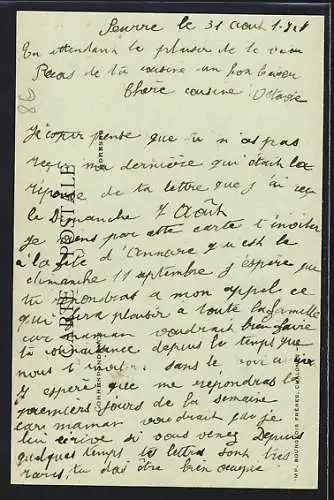 Seurre le 31 Août
En attendant le plaisir de te
de ta cousine un bon baiser
Chère cousine
pense que tu n'as pas
reçu ma dernière qui était la
réponse de ta lettre que j'ai reçu
le Dimanche 7 Août
Je viens par cette carte t'inviter
à la fête d' qu est le
dimanche 11 septembre J espère que
tu répondras a mon appel ce
qui fera plaisir a toute la famille
car maman voudrait bien faire
ta connaissance depuis le temps que
nous t' sans te voir
J espère que me repondras les
premiers jours de la semaine
car maman voudrait que je
lui écrive si vous venez Depuis
quelques temps tes lettres sont bien
rares, tu dois être bien occupée
CARTE POSTALE
CORRESPONDANCE
ADRESSE
IMP. BOURGEOIS FRÈRES, CHALON